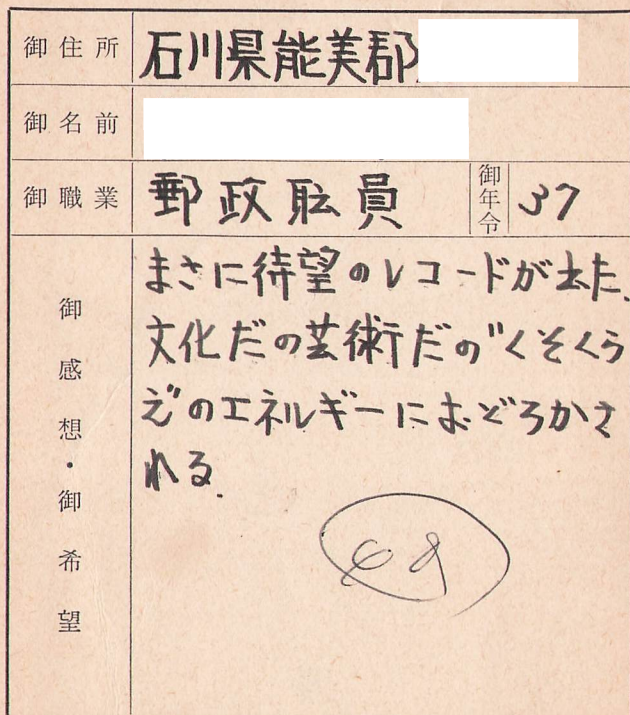 御住所 石川県能美郡
御名前
御職業 郵政職員 御年令 37
御感想・御希望
まさに待望のレコードが出た.
文化だの芸術だの"くそくら
え"のエネルギーにおどろかさ
れる.